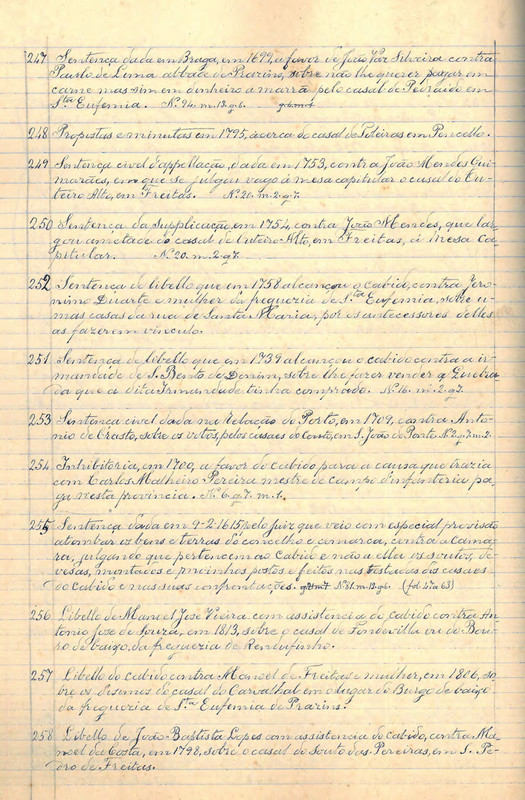 247 Sentença dada em Braga, em 1699, a favor de João Vaz Silveira contra
Paulo de Lima abbade de Prazins, sobre não lhe querer pagar em
carne mas sim em dinheiro a marrã pelo casal de Pedraido em
S.ta Eufemia. N.º 94. m. 13. g. 6.
248 Propostas e minutas em 1795, ácerca do casal de Poleiras em Poncello.
249 Sentença civel d'appellação, dada em 1753, contra João Mendes Gui-
marães, em que se julgou vago á mesa capitular o casal do Ou-
teiro Alto, em Freitas. N.º 21. m. 2. g. 7.
250 Sentença da Supplicação, em 1754, contra João Mendes, que lar-
gou ametade do casal de Outeiro Alto, em Freitas, á Mesa Ca-
pitular. N.º 20. m. 2. g. 7.
252 Sentença de libello que em 1758 alcançou o Cabido, contra Jero-
nimo Duarte e mulher da freguezia de S.ta Eufemia, sobre u-
mas casas da rua de Santa Maria, por os antecessores delles
as fazerem vinculo.
251 Sentença de libello que em 1739 alcançou o cabido contra a ir-
mandade de S. Bento de Donim, sobre lhe fazer vender a Quebra-
da que a dita Irmandade tinha comprado. N.º 16. m. 2. g. 7.
253 Sentença civel dada na Relação do Porto, em 1709, contra Anto-
nio de Crasto, sobre os votos, pelos casaes do Conto, em S. João de Ponte N.º 2. g. 7. m. 2.
254 Inhibitoria, em 1700, a favor do cabido para a causa que trazia
com Carlos Malheiro Pereira mestre de campo d'infanteria pa-
ga nesta provincia. N.º 6. g. 7. m. 1.
255 Sentença dada em 9-2-1615 pelo juiz que veio com especial provisão
atombar os bens e terras do concelho e comarca, contra a Cama-
ra, julgando que pertencem ao Cabido e não a ella os soutos, de-
vesas, montados e moinhos postos e feitos nas testadas dos casaes
do Cabido e nas suas confrontações. N.º 81. m. 13. g. 6. (fol. 47 a 63)
256 Libello de Manoel José Vieira com assistencia do Cabido contra An-
tonio Jose de Souza, em 1813, sobre o casal de Fondevilla ou do Bou-
ro de baixo, da freguezia de Rendufinho.
257 Libello do cabido contra Manoel de Freitas e mulher, em 1806, so-
bre os dizimos do casal do Carvalhal em o logar do Burgo de baixo
da freguezia de S.ta Eufemia de Prazins.
258 Libello de João Baptista Lopes com assistencia do cabido, contra Ma-
noel da Costa, em 1798, sobre o casal do Souto das Pereiras, em S. Pe-
dro de Freitas.